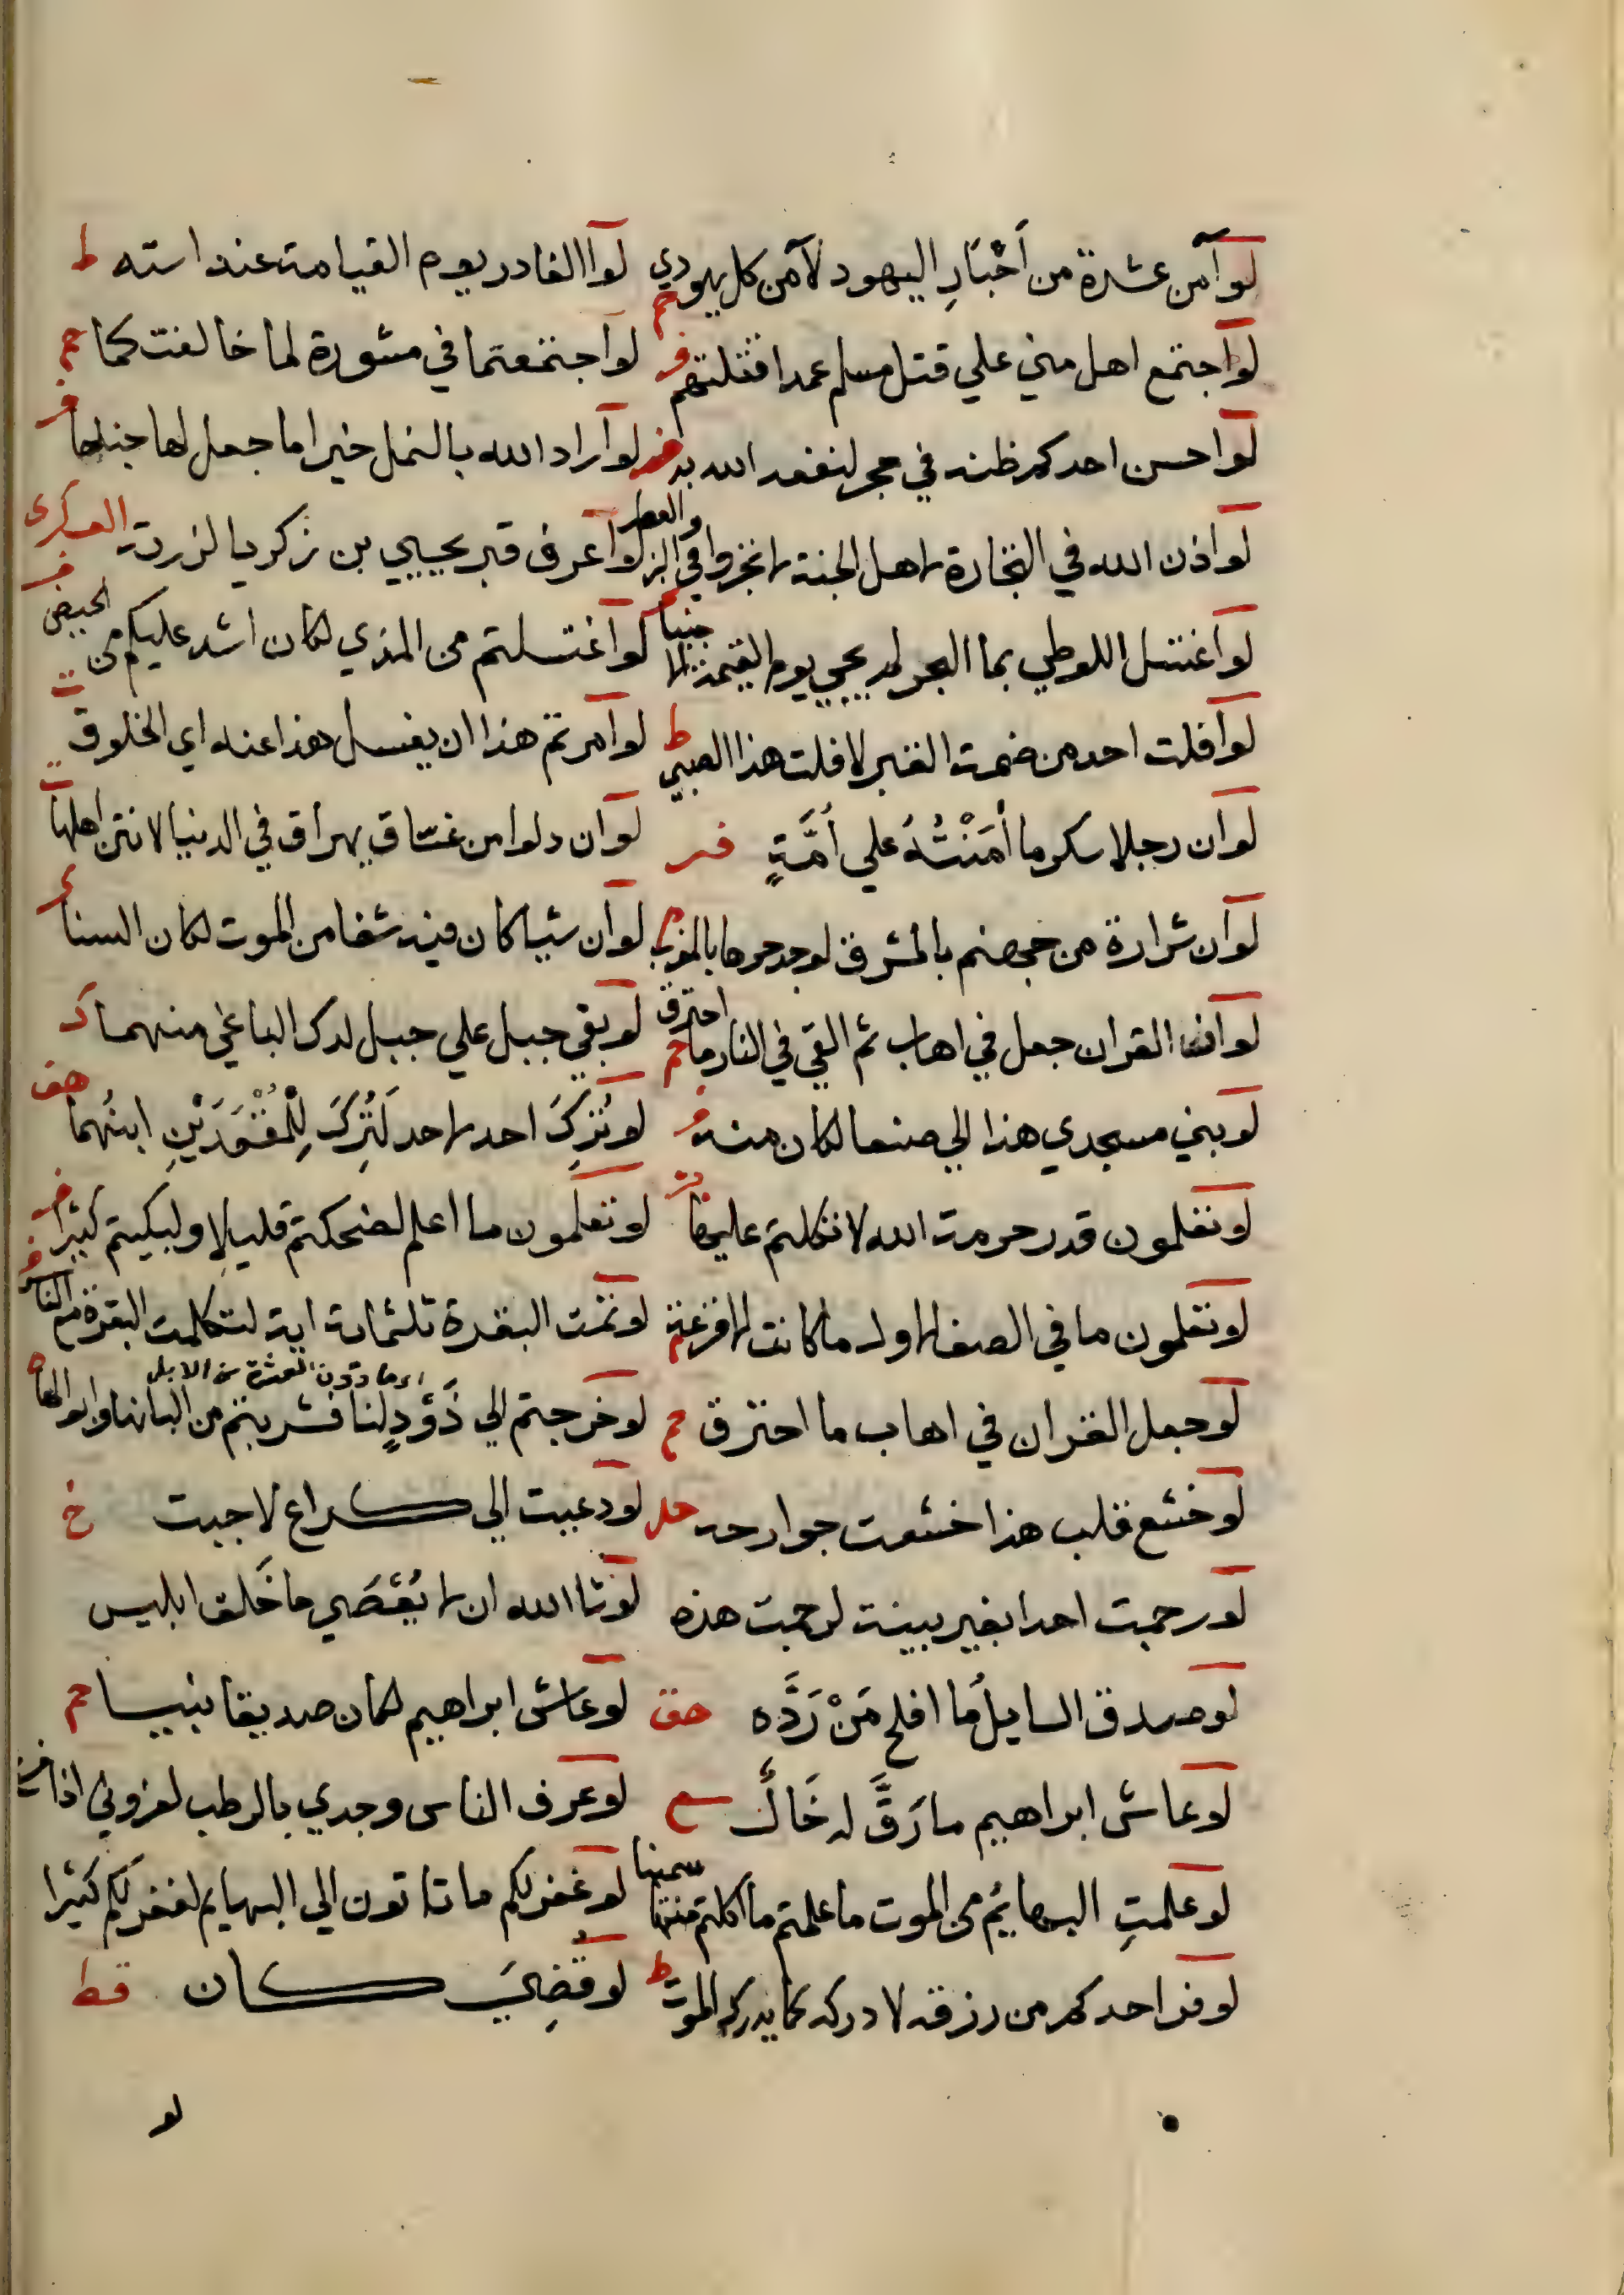 لو آمن عشرة من أحْبَارِ اليهود لآمن كل يهودي حم لوا الغادر يوم القيامة عند استه ط
لو اجتمع اهل مني علي قتل مسلم عمدا قتلتهم فر لو اجتمعتما في مشورة لما خالفتكما حم
لو احسن احدكم ظنه في حجر لنفعه الله به لو اراد الله بالنمل خيرا ما جعل لها جناحا فر
لو اذن الله في التجارة لاهل الجنة لاتجروا في البز والعطر لو اعرف قبر يحيي بن زكريا لزرته العسكرى
لو اغتسل اللوطي بما البحر لم يجي يوم القيمة الا جنبا لو اغتسلتم من المذي لكان اشد عليكم من الحيض
لو افلت احد من ضمة القبر لافلت هذا الصبي ط لو امرتم هذا ان يغسل هذا عنه اي الخلوق
لو ان رجلا سكر ما أمَنْتُهُ علي أُمَّةٍ فر لو ان دلوا من غساق يهراق في الدنيا لانتن اهلها ت
لو ان شرارة من جهنم بالمشرق لوجد حرها بالمغرب لو ان شيا كان فيه شفا من الموت لكان السنا
لو ان القران جعل في اهاب ثم القي في النار ما احترق حم لو بغي جبل علي جبل لدك الباغي منهما
لو بني مسجدي هذا الي صنعا لكان منه فر لو تُرِكَ احد لاحد لَتُرِكَ لِلْمُقْعَدَيْنِ ابنُهما هق
لو تعلمون قدر رحمة الله لاتكلتم عليها لو تعلمون ما اعلم لضحكتم قليلا ولبكيتم كثيرا
لو تعلمون ما في الصف الاول ما كانت الا قرعة لو تمت البقرة ثلثماية اية لتكلمت البقرة مع الناس
لو جعل القران في اهاب ما احترق حم لو خرجتم الي ذَوْدٍ لنا فشربتم من البانها وابوالها
ما دون العشرة من الابل
لو خشع قلب هذا خشعت جوارحه لو دعيت الي كراع لاجبت خ
لو رجمت احدا بغير بينة لرجمت هذه لو شا الله ان لا يُعْصَي ما خَلق ابليس
لو صدق السايلُ ما افلح مَنْ رَدَّه هق لو عاش ابراهيم لكان صديقا نبيا حم
لو عاش ابراهيم ما رَقَّ له خَالٌ لو عرف الناس وجدي بالرطب لعزوني اذا ذهب
لو علمتِ البهايُم من الموت ما علمتم ما اكلتم منها سمينا لو غفر لكم ما تاتون الي البهايم لغفر لكم كثيرا
لو فر احدكم من رزقه لادركه كما يدركه الموت ط لو قُضِيَ كان قط
لو